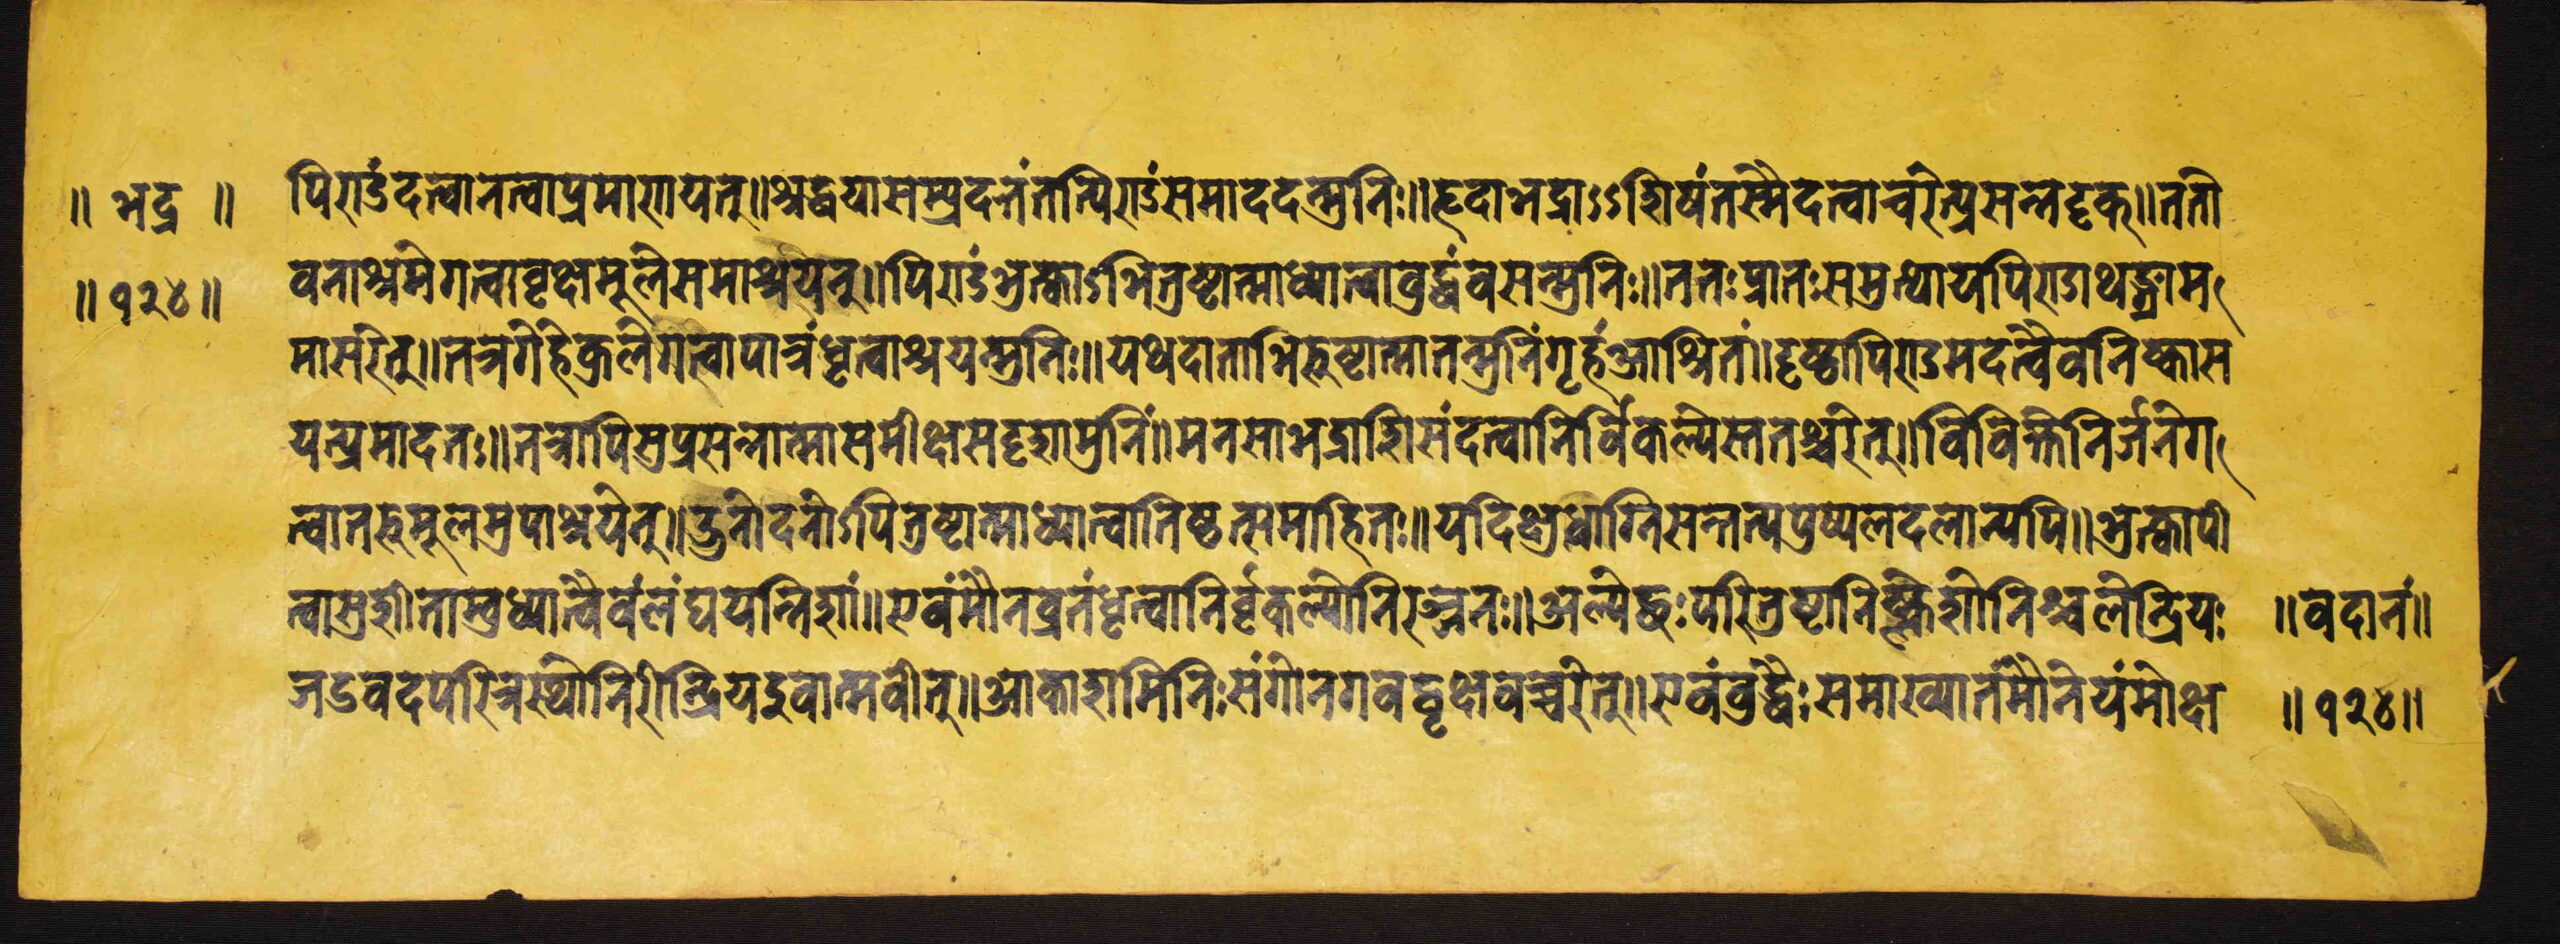 ॥ भद्र ॥
॥ १२४ ॥
पिण्डं दत्वा नत्वा प्रमाणयेत् ॥ श्रद्धया सम्प्रदत्तं तत्पिण्डं समाददन्मुनिः ॥ हृदा भद्राऽऽशिषं तस्मै दत्वा चरेत्प्रसन्नदृक् ॥ ततो
वनाश्रमे गत्वा वृक्षमूले समाश्रयेत् ॥ पिण्डं भुक्त्वाऽभितुष्टात्मा ध्यात्वा बुद्धं वसन्मुनिः ॥ ततः प्रातः समुत्थाय पिण्डार्थं ग्राम
मासरेत् ॥ तत्र गेहे कुले गत्वा पात्रं धृत्वाश्रयन्मुनिः ॥ यथ दाताभिरुष्टात्मा तन्मुनिं गृहं आश्रितं ॥ दृष्ट्वा पिण्डमदत्वैव निष्कास
येत्प्रमादतः ॥ तत्रापि सुप्रसन्नात्मा समीक्ष सदृशमुनिं ॥ मनसा भद्राशिसं दत्वा निर्विकल्पस्ततश्चरेत् ॥ विविक्ते निर्जने ग
त्वा तरुमूलमुपाश्रयेत् ॥ दुनोदनोऽपि तुष्टात्मा ध्यात्वा तिष्ठत्समाहितः ॥ यदि क्षुधाग्निसन्तप्तपुष्पलदलान्यपि ॥ भुक्त्वा पी
त्वा सुशीताम्बु ध्यात्वैवं लंघयन्निशां ॥ एवं मौनव्रतं धृत्वा निर्विकल्पो निरञ्जनः ॥ अल्पेच्छः परितुष्टो निष्क्लेशो निश्चलेन्द्रियः
जडवदपरित्रस्थो निरीन्द्रिय इवात्मवीत् ॥ आकाशमिनिः संगो नगवद्वृक्षवच्चरेत् ॥ एवं बुद्धैः समाख्यातं मौनेयं मोक्ष
॥ वदानं ॥
॥ १२४ ॥